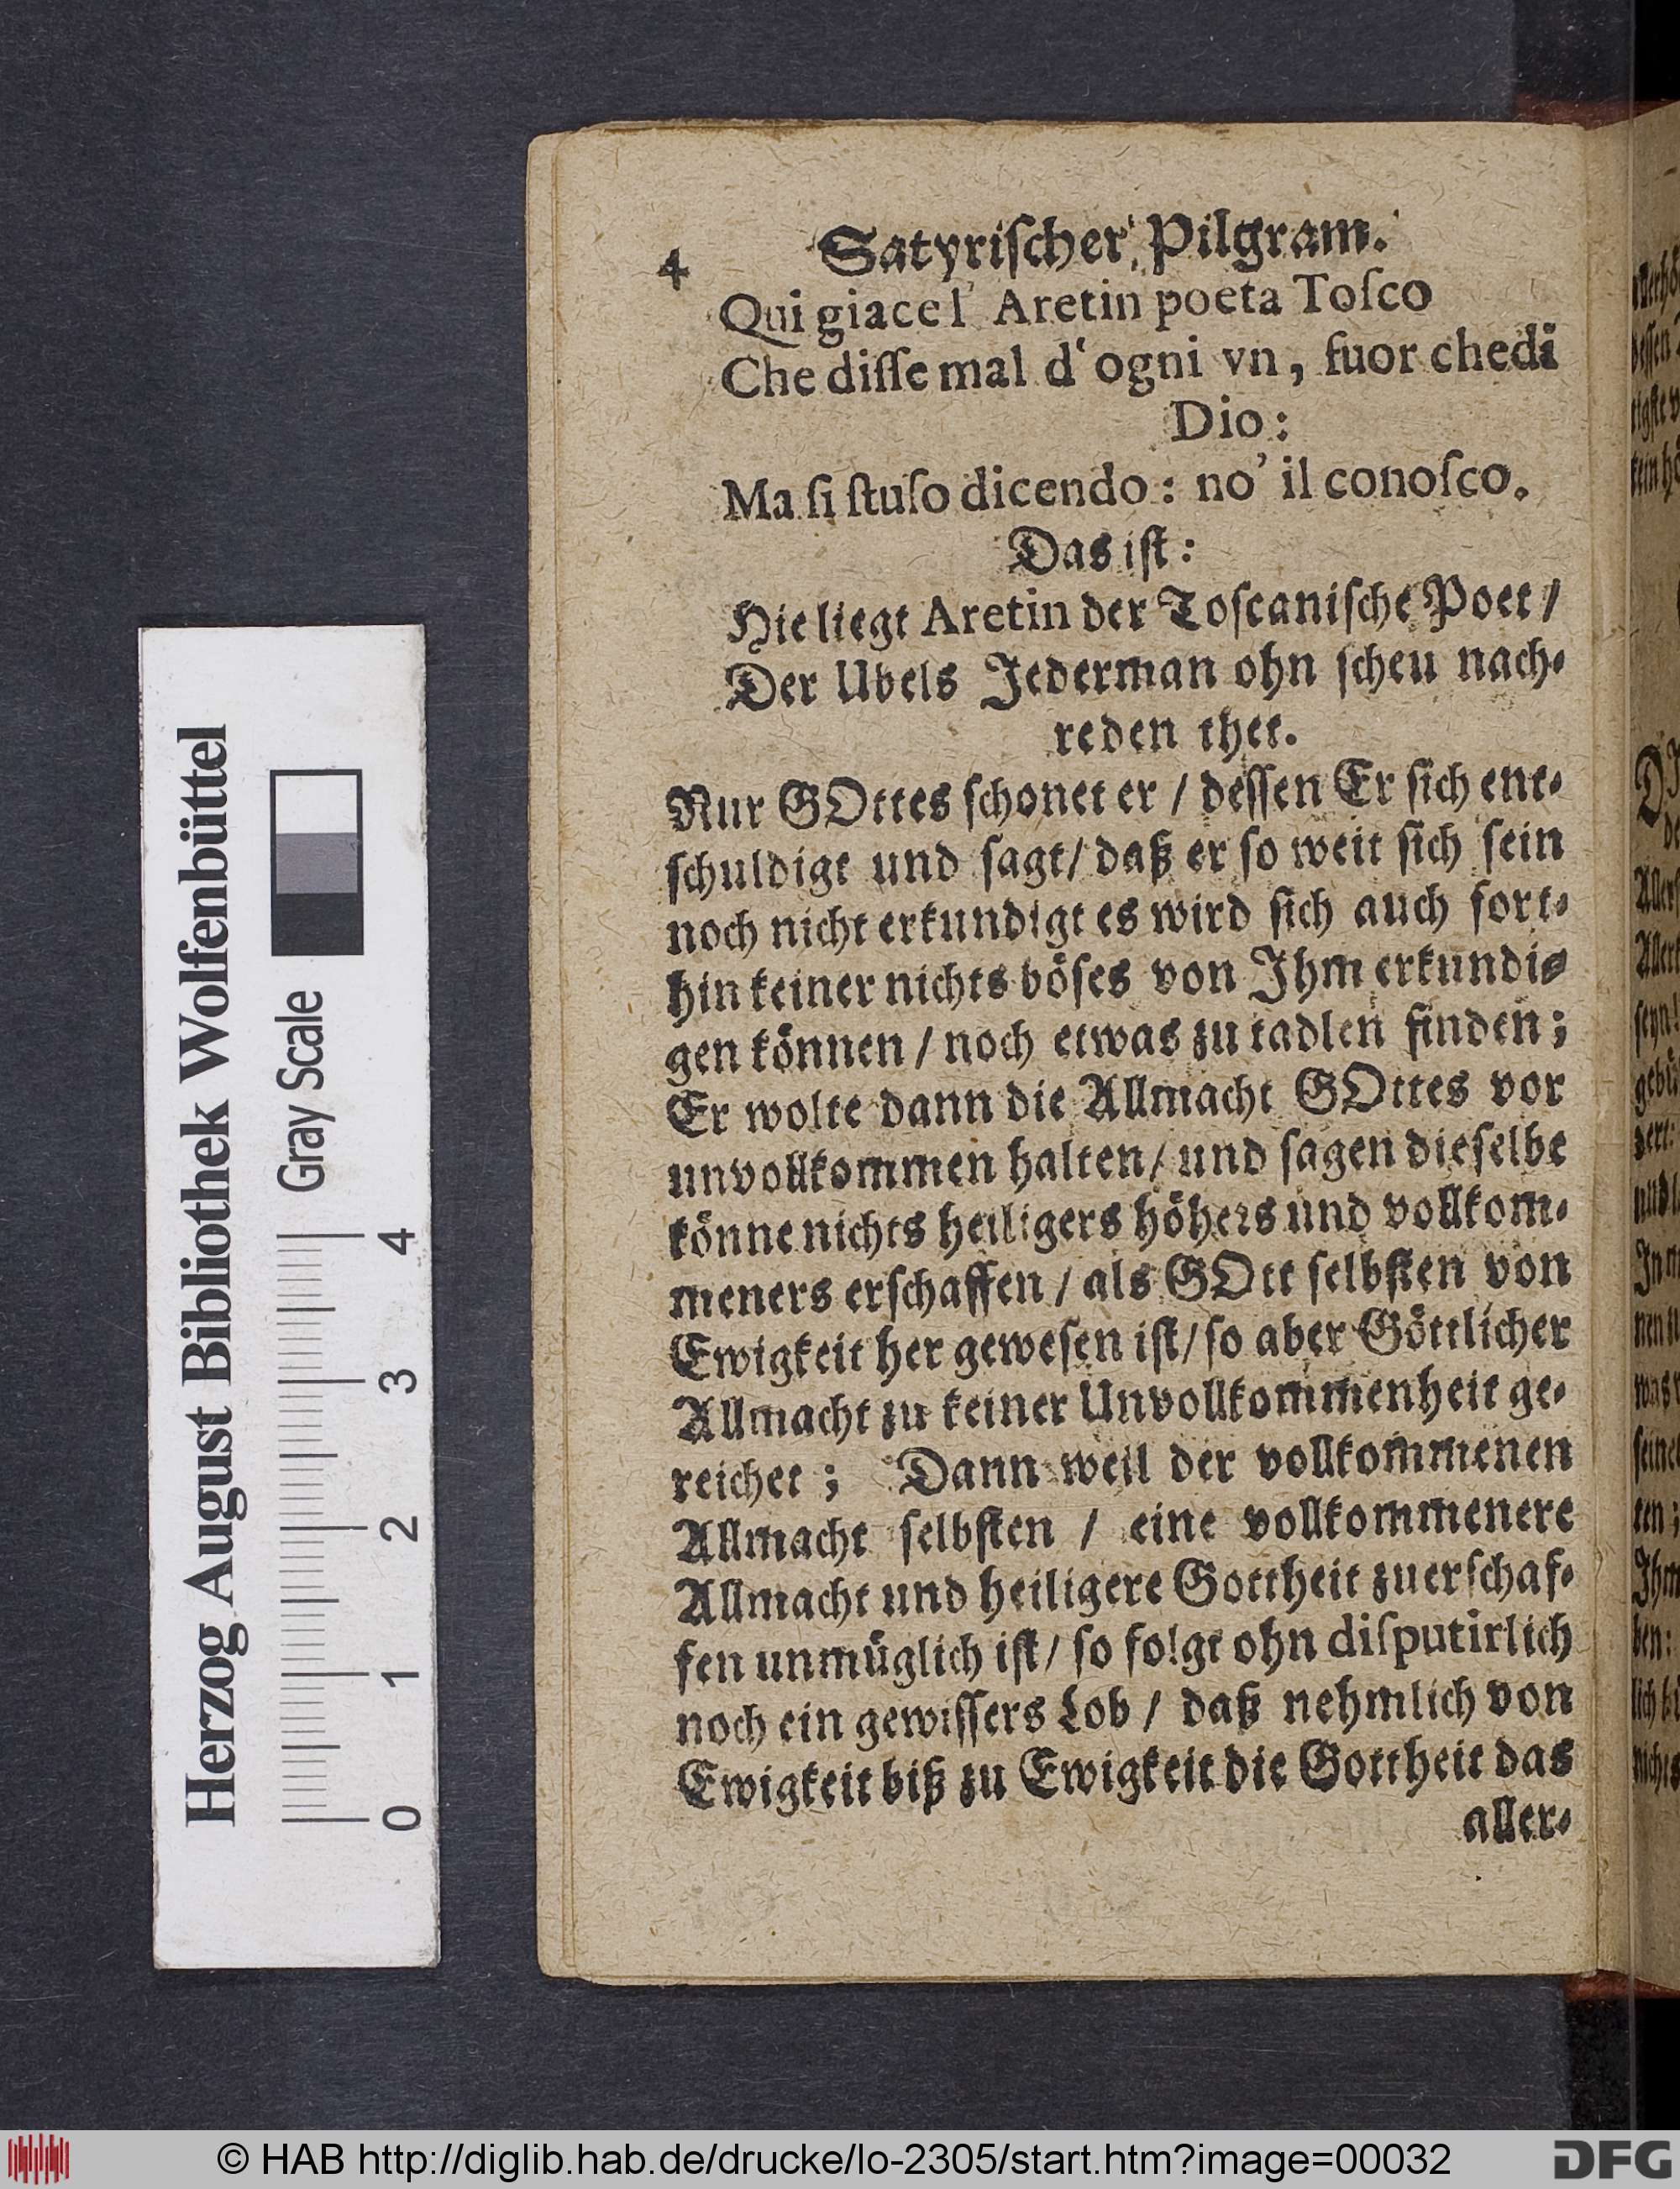 4 Satyriſcher Pilgram.
Qui giace l' Aretin poeta Toſco
Che diſſe mal d'ogni vn, fuor che di
Dio:
Ma ſi ſtuſo dicendo: no' il conoſco.
Das iſt:
Hie liegt Aretin der Toſcaniſche Poet /
Der Ubels Jederman ohn ſcheu nach-
reden thet.
Nur GOttes ſchonet er / deſſen Er ſich ent-
ſchuldigt und ſagt / daß er ſo weit ſich ſein
noch nicht erkundigt es wird ſich auch fort-
hin keiner nichts böſes von Ihm erkundi-
gen können / noch etwas zu tadlen finden;
Er wolte dann die Allmacht GOttes vor
unvollkommen halten / und ſagen dieſelbe
könne nichts heiligers höhers und vollkom-
meners erſchaffen / als GOtt ſelbſten von
Ewigkeit her geweſen iſt / ſo aber Göttlicher
Allmacht zu keiner Unvollkommenheit ge-
reichet; Dann weil der vollkommenen
Allmacht ſelbſten / eine vollkommenere
Allmacht und heiligere Gottheit zuerſchaf-
fen unmüglich iſt / ſo folgt ohn diſputirlich
noch ein gewiſſers Lob / daß nehmlich von
Ewigkeit biß zu Ewigkeit die Gottheit das
aller-
Herzog August Bibliothek Wolfenbüttel
Gray Scale
0 1 2 3 4
© HAB http://diglib.hab.de/drucke/lo-2305/start.htm?image=00032
DFG